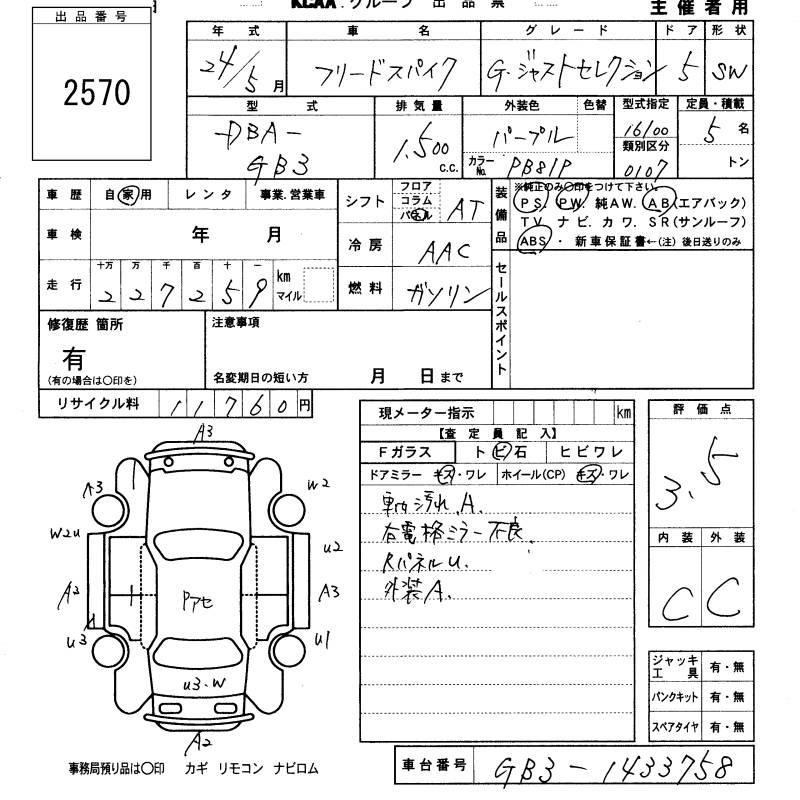 KCAA.グループ 出品票
主催者用
出品番号
2570
年式 車名 グレード ドア 形状
24/5月 フリードスパイク G.ジャストセレクション 5 SW
型式 排気量 外装色 色替 型式指定 定員・積載
DBA-GB3 1,500 c.c. パープル 16100 5名
類別区分
カラーNo. PB81P 0107 トン
車歴 自家用 レンタ 事業.営業車
シフト フロア コラム パネル AT
装備品 ※純正のみ〇印をつけて下さい。
PS. PW. 純AW. AB(エアバック)
TV. ナビ. カワ. SR(サンルーフ)
ABS ・ 新車保証書←(注) 後日送りのみ
車検 年 月
冷房 AAC
走行 十万 万 千 百 十 一 km マイル
227259
燃料 ガソリン
セールスポイント
修復歴 箇所
有
(有の場合は〇印を)
注意事項
名変期日の短い方 月 日まで
リサイクル料 11760円
現メーター指示 km
【査定員記入】
Fガラス ト ビ石 ヒビワレ
ドアミラー キズ・ワレ ホイール(CP) キズ・ワレ
車内汚れ.A.
右電格ミラー不良.
Rパネルu.
外装A.
評価点
3.5
内装 外装
C C
A3
A3
W2
W2u
u2
A2
A3
Pアセ
u3
u1
u3.W
A2
ジャッキ工具 有・無
パンクキット 有・無
スペアタイヤ 有・無
事務局預り品は〇印 カギ リモコン ナビロム
車台番号 GB3-1433758